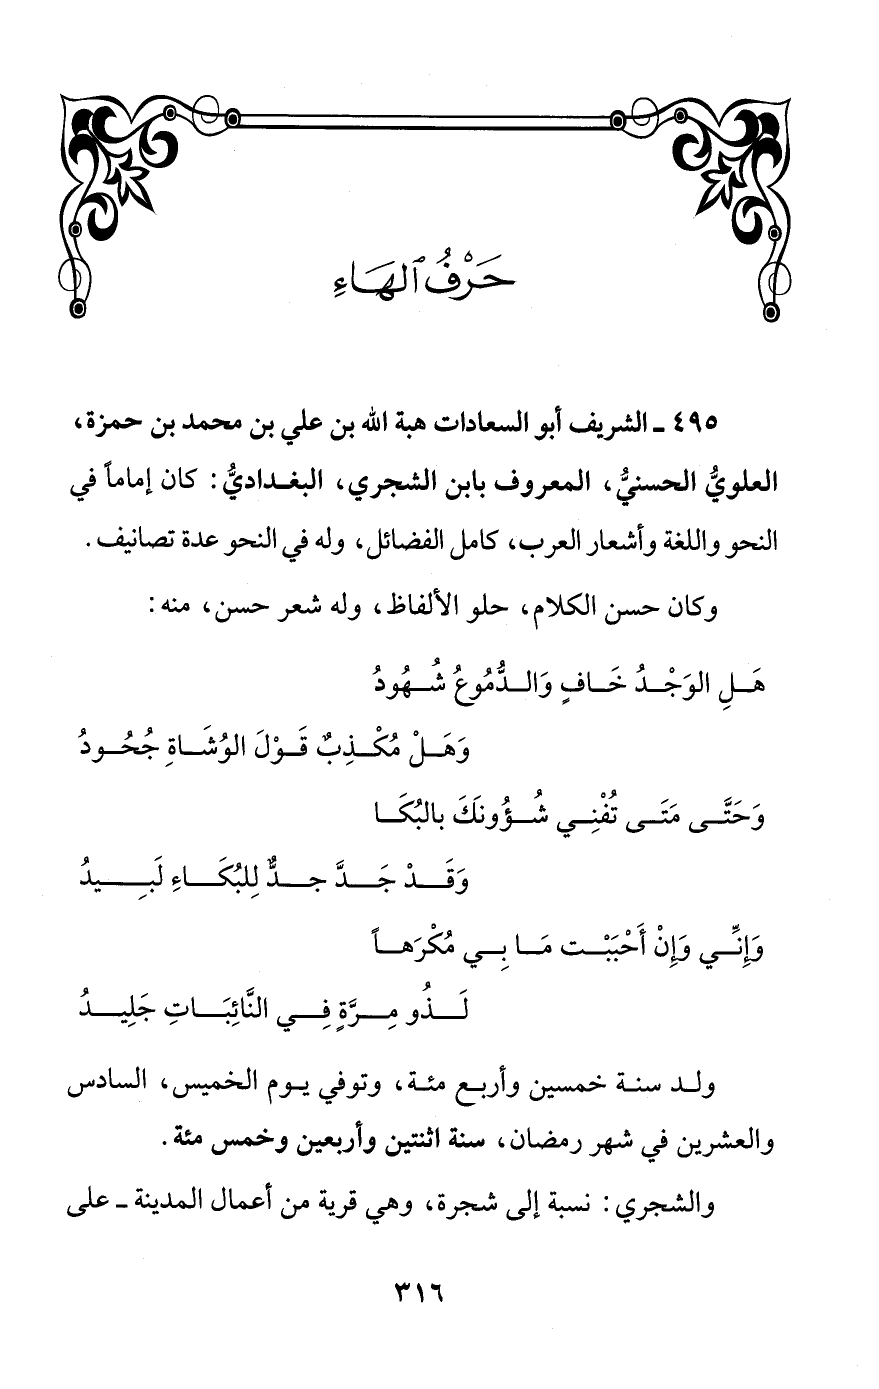 حَرْفُ ٱلهَاءِ
٤٩٥ ـ الشريف أبو السعادات هبة الله بن علي بن محمد بن حمزة،
العلويُّ الحسنيُّ، المعروف بابن الشجري، البغداديُّ: كان إماماً في
النحو واللغة وأشعار العرب، كامل الفضائل، وله في النحو عدة تصانيف.
وكان حسن الكلام، حلو الألفاظ، وله شعر حسن، منه:
هَلِ الوَجْدُ خَافٍ وَالدُّمُوعُ شُهُودُ
وَهَلْ مُكْذِبٌ قَوْلَ الوُشَاةِ جُحُودُ
وَحَتَّى مَتَى تُفْنِي شُؤُونَكَ بالبُكَا
وَقَدْ جَدَّ جدٌّ لِلبُكَاءِ لَبِيدُ
وَإِنِّي وَإِنْ أَحْبَبْت مَا بِي مُكْرَهاً
لَذُو مِرَّةٍ فِي النَّائِبَاتِ جَلِيدُ
ولد سنة خمسين وأربع مئة، وتوفي يوم الخميس، السادس
والعشرين في شهر رمضان، سنة اثنتين وأربعين وخمس مئة.
والشجري: نسبة إلى شجرة، وهي قرية من أعمال المدينة ـ على
٣١٦